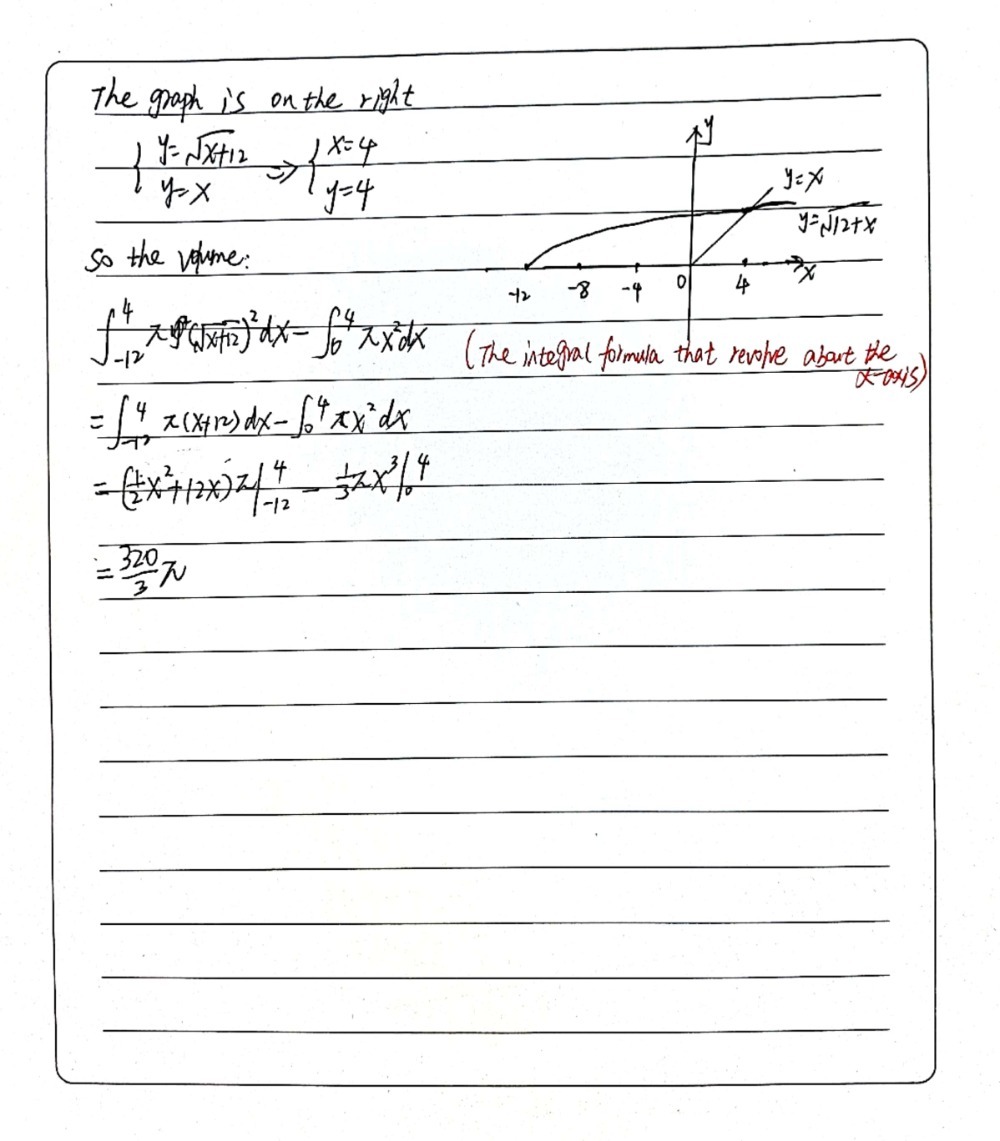 The graph is on the right
{ y=√x+12 y=x ⇒ { x=4 y=4
y
y=x
y=√12+x
-12 -8 -4 0 4 x
So the volume:
∫₋₁₂⁴ π(√x+12)²dx - ∫₀⁴ πx²dx
(The integral formula that revolve about the
x-axis)
= ∫₋₁₂⁴ π(x+12)dx - ∫₀⁴ πx²dx
= (1/2x²+12x)π|₋₁₂⁴ - 1/3πx³|₀⁴
= 320/3 π